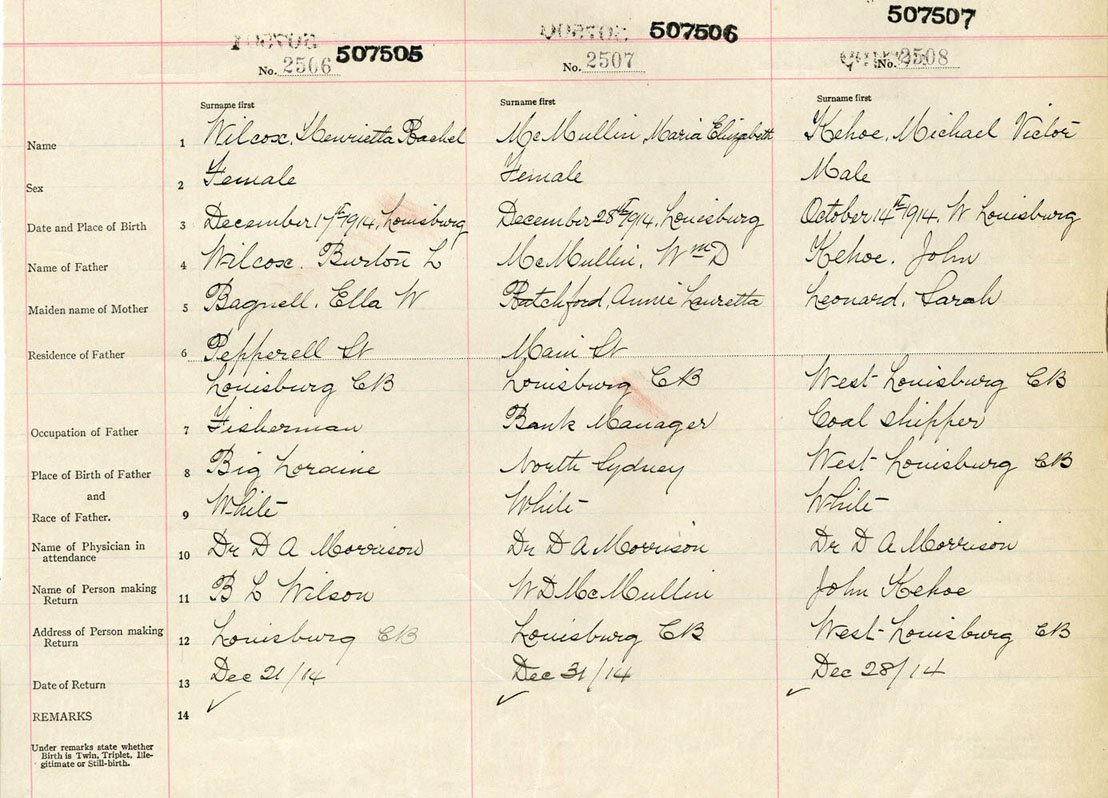 507505 507506 507507
No. 2506 No. 2507 No. 2508
Surname first Surname first Surname first
Name 1 Wilcox, Henrietta Rachel McMullin, Maria Elizabeth Kehoe, Michael Victor
Sex 2 Female Female Male
Date and Place of Birth 3 December 17th 1914, Louisburg December 28th 1914, Louisburg October 14th 1914, W Louisburg
Name of Father 4 Wilcox. Burton L McMullin, Wm D Kehoe, John
Maiden name of Mother 5 Bagnell, Ella W Ratchford, Annie Lauretta Leonard, Sarah
Residence of Father 6 Pepperell St Main St
Louisburg CB Louisburg CB West Louisburg CB
Occupation of Father 7 Fisherman Bank Manager Coal Shipper
Place of Birth of Father 8 Big Loraine North Sydney West Louisburg CB
and
Race of Father. 9 White White White
Name of Physician in attendance 10 Dr D A Morrison Dr D A Morrison Dr D A Morrison
Name of Person making Return 11 B L Wilson W D McMullin John Kehoe
Address of Person making Return 12 Louisburg CB Louisburg CB West Louisburg CB
Date of Return 13 Dec 21/14 Dec 31/14 Dec 28/14
REMARKS 14
Under remarks state whether
Birth is Twin, Triplet, Ille-
gitimate or Still-birth.